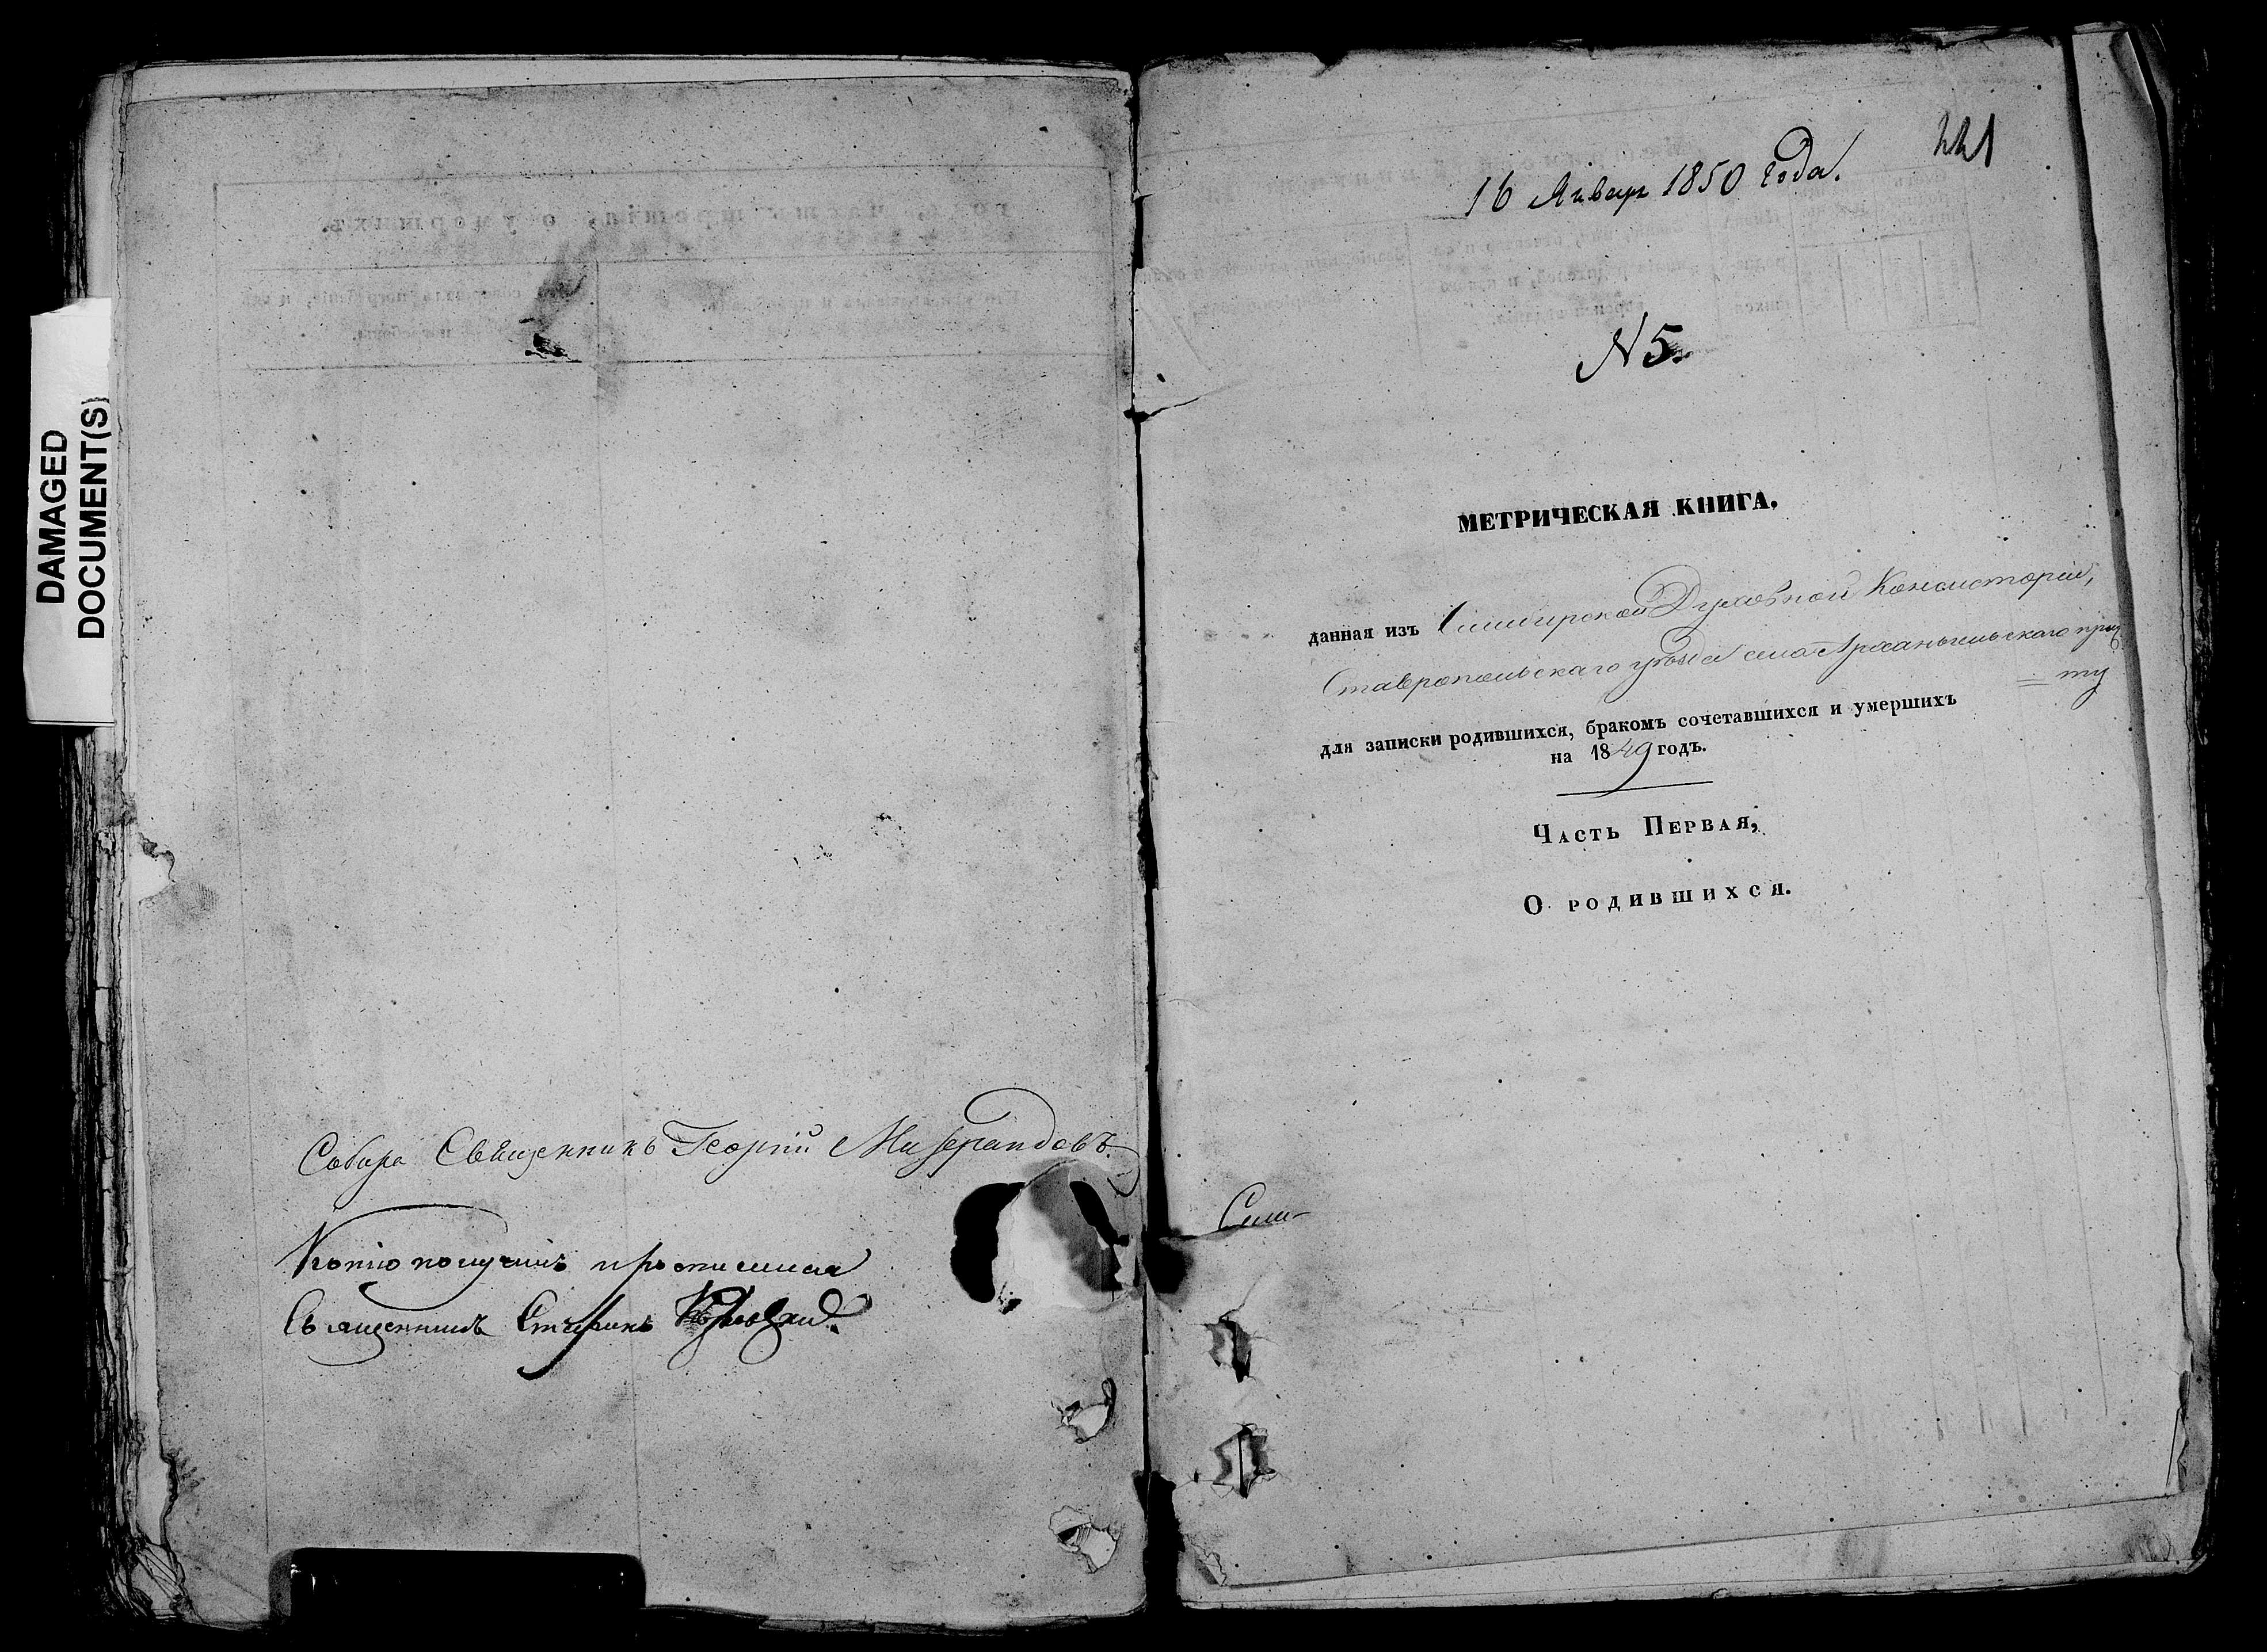 DAMAGED
DOCUMENT(S)
Собора Священникъ Георгій Мизерандовъ.
Копію получилъ
Священникъ Стефанъ
221
16 Января 1850 Года.
N 5.
МЕТРИЧЕСКАЯ КНИГА,
данная изъ Симбирской Духовной Консисторіи,
Ставропольскаго уѣзда села Архангельскаго прич
=ту
для записки родившихся, бракомъ сочетавшихся и умершихъ
на 1849 годъ.
Часть Первая,
О родившихся.